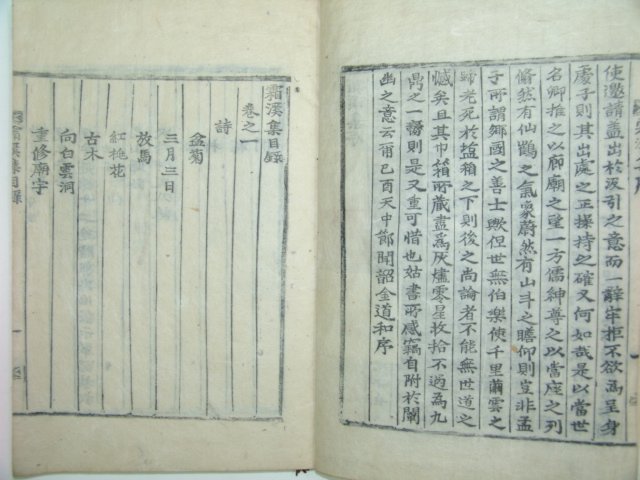 使邀請盡出於汲引之意而一辭牢拒不欲爲呈身
慶子則其出處之正操持之確又何如哉是以當世
名卿推之以廊廟之望一方儒紳尊之以當座之列
脩然有仙鶴之氣象蔚然有山斗之瞻仰則豈非孟
子所謂鄕國之善士歟但世無伯樂使千里繭雲之
蹄老死於鹽箱之下則後之尚論者不能無世道之
憾矣且其巾箱所藏盡爲灰燼零星收拾不過爲九
鼎之一臠則是又重可惜也姑書所感竊自附於闡
幽之意云爾己酉天中節聞韶金道和序
霜溪集目錄
卷之一
詩
盆菊
三月三日
放馬
紅桃花
古木
向白雲洞
重修廟宇
霜溪集目錄